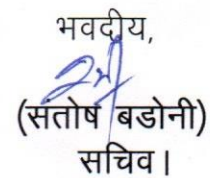 भवदीय,
(संतोष बडोनी)
सचिव।